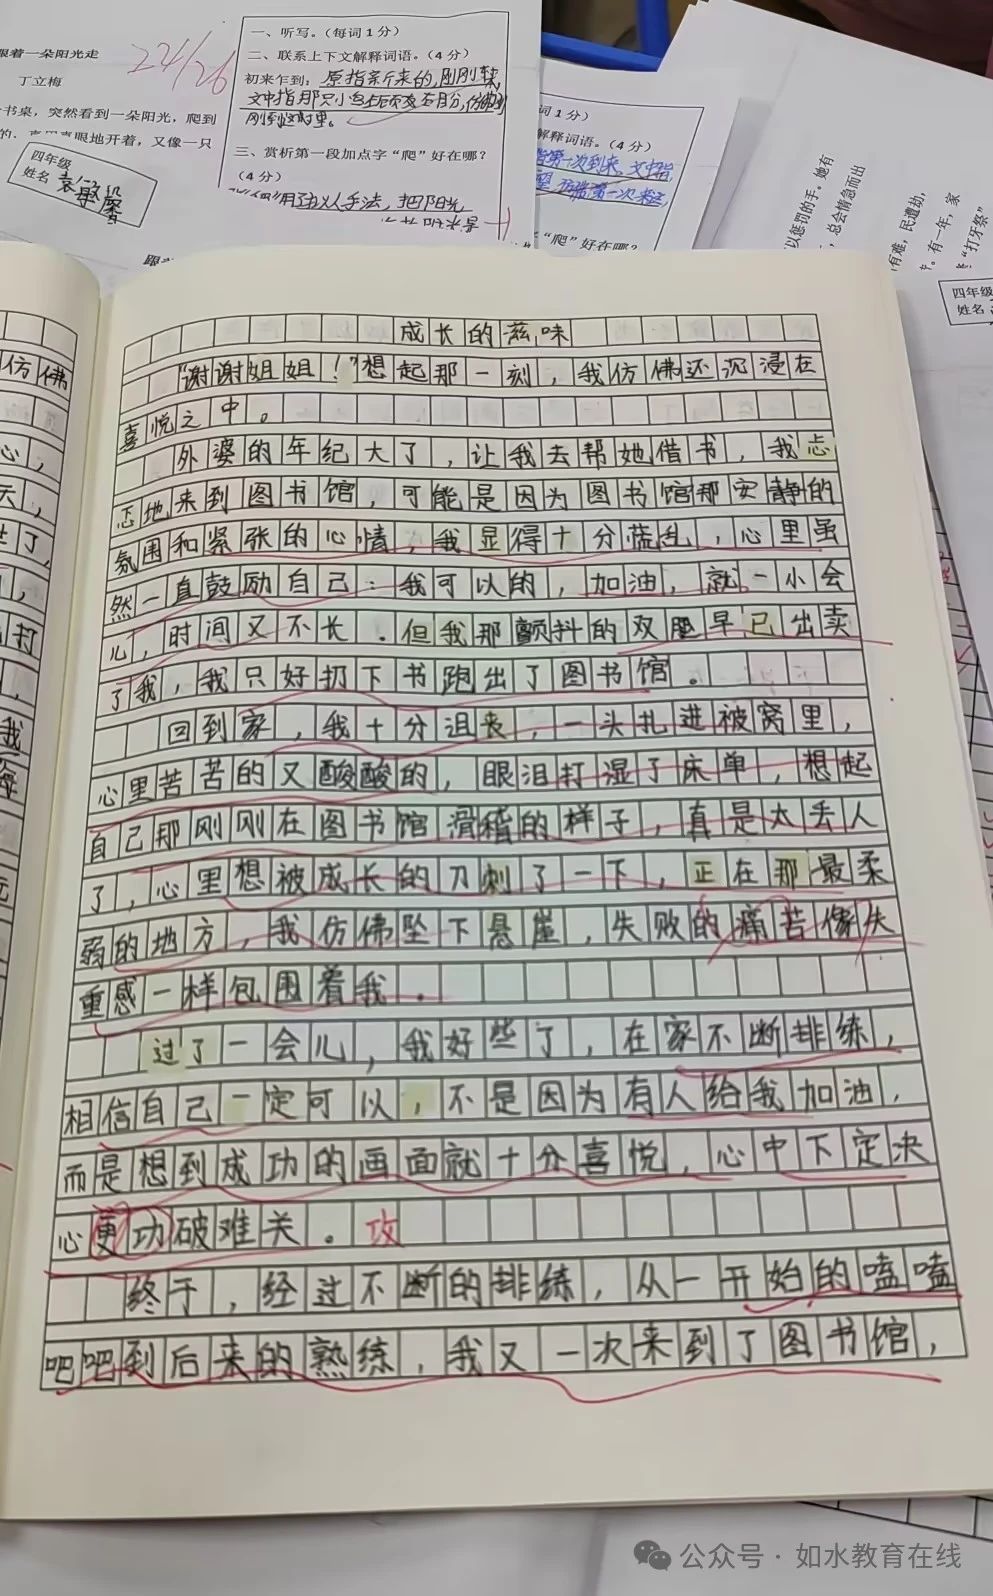 跟着一朵阳光走
丁立梅
书桌，突然看到一朵阳光，爬到
眼地开着，又像一只
四年级
姓名
24/26
一、听写。(每词1分)
二、联系上下文解释词语。(4分)
初来乍到：原指新来的，刚刚来
刚到这里。
三、赏析第一段加点字“爬”好在哪？
(4分)
用了拟人手法，把阳光
词1分)
解释词语。(4分)
第一次到来，文中指
第一次来
“爬”好在哪？
以惩罚的手。她有
，总会情急而出
有难，民遭劫，
。有一年，家
“打牙祭”
四年级
姓名
仿佛
心，
天，
我
成长的滋味
“谢谢姐姐！”想起那一刻，我仿佛还沉浸在
喜悦之中。
外婆的年纪大了，让我去帮她借书，我忐
忑地来到图书馆，可能是因为图书馆那安静的
氛围和紧张的心情，我显得十分慌乱，心里虽
然一直鼓励自己：我可以的，加油，就一小会
儿，时间又不长。但我那颤抖的双腿早已出卖
了我，我只好扔下书跑出了图书馆。
回到家，我十分沮丧，一头扎进被窝里，
心里苦苦的又酸酸的，眼泪打湿了床单，想起
自己那刚刚在图书馆滑稽的样子，真是太丢人
了，心里想被成长的刀刺了一下，正在那最柔
弱的地方，我仿佛坠下悬崖，失败的痛苦像失
重感一样包围着我。
过了一会儿，我好些了，在家不断排练，
相信自己一定可以，不是因为有人给我加油，
而是想到成功的画面就十分喜悦，心中下定决
心更功破难关。攻
终于，经过不断的排练，从一开始的嗑嗑
吧吧到后来的熟练，我又一次来到了图书馆，
公众号·如水教育在线